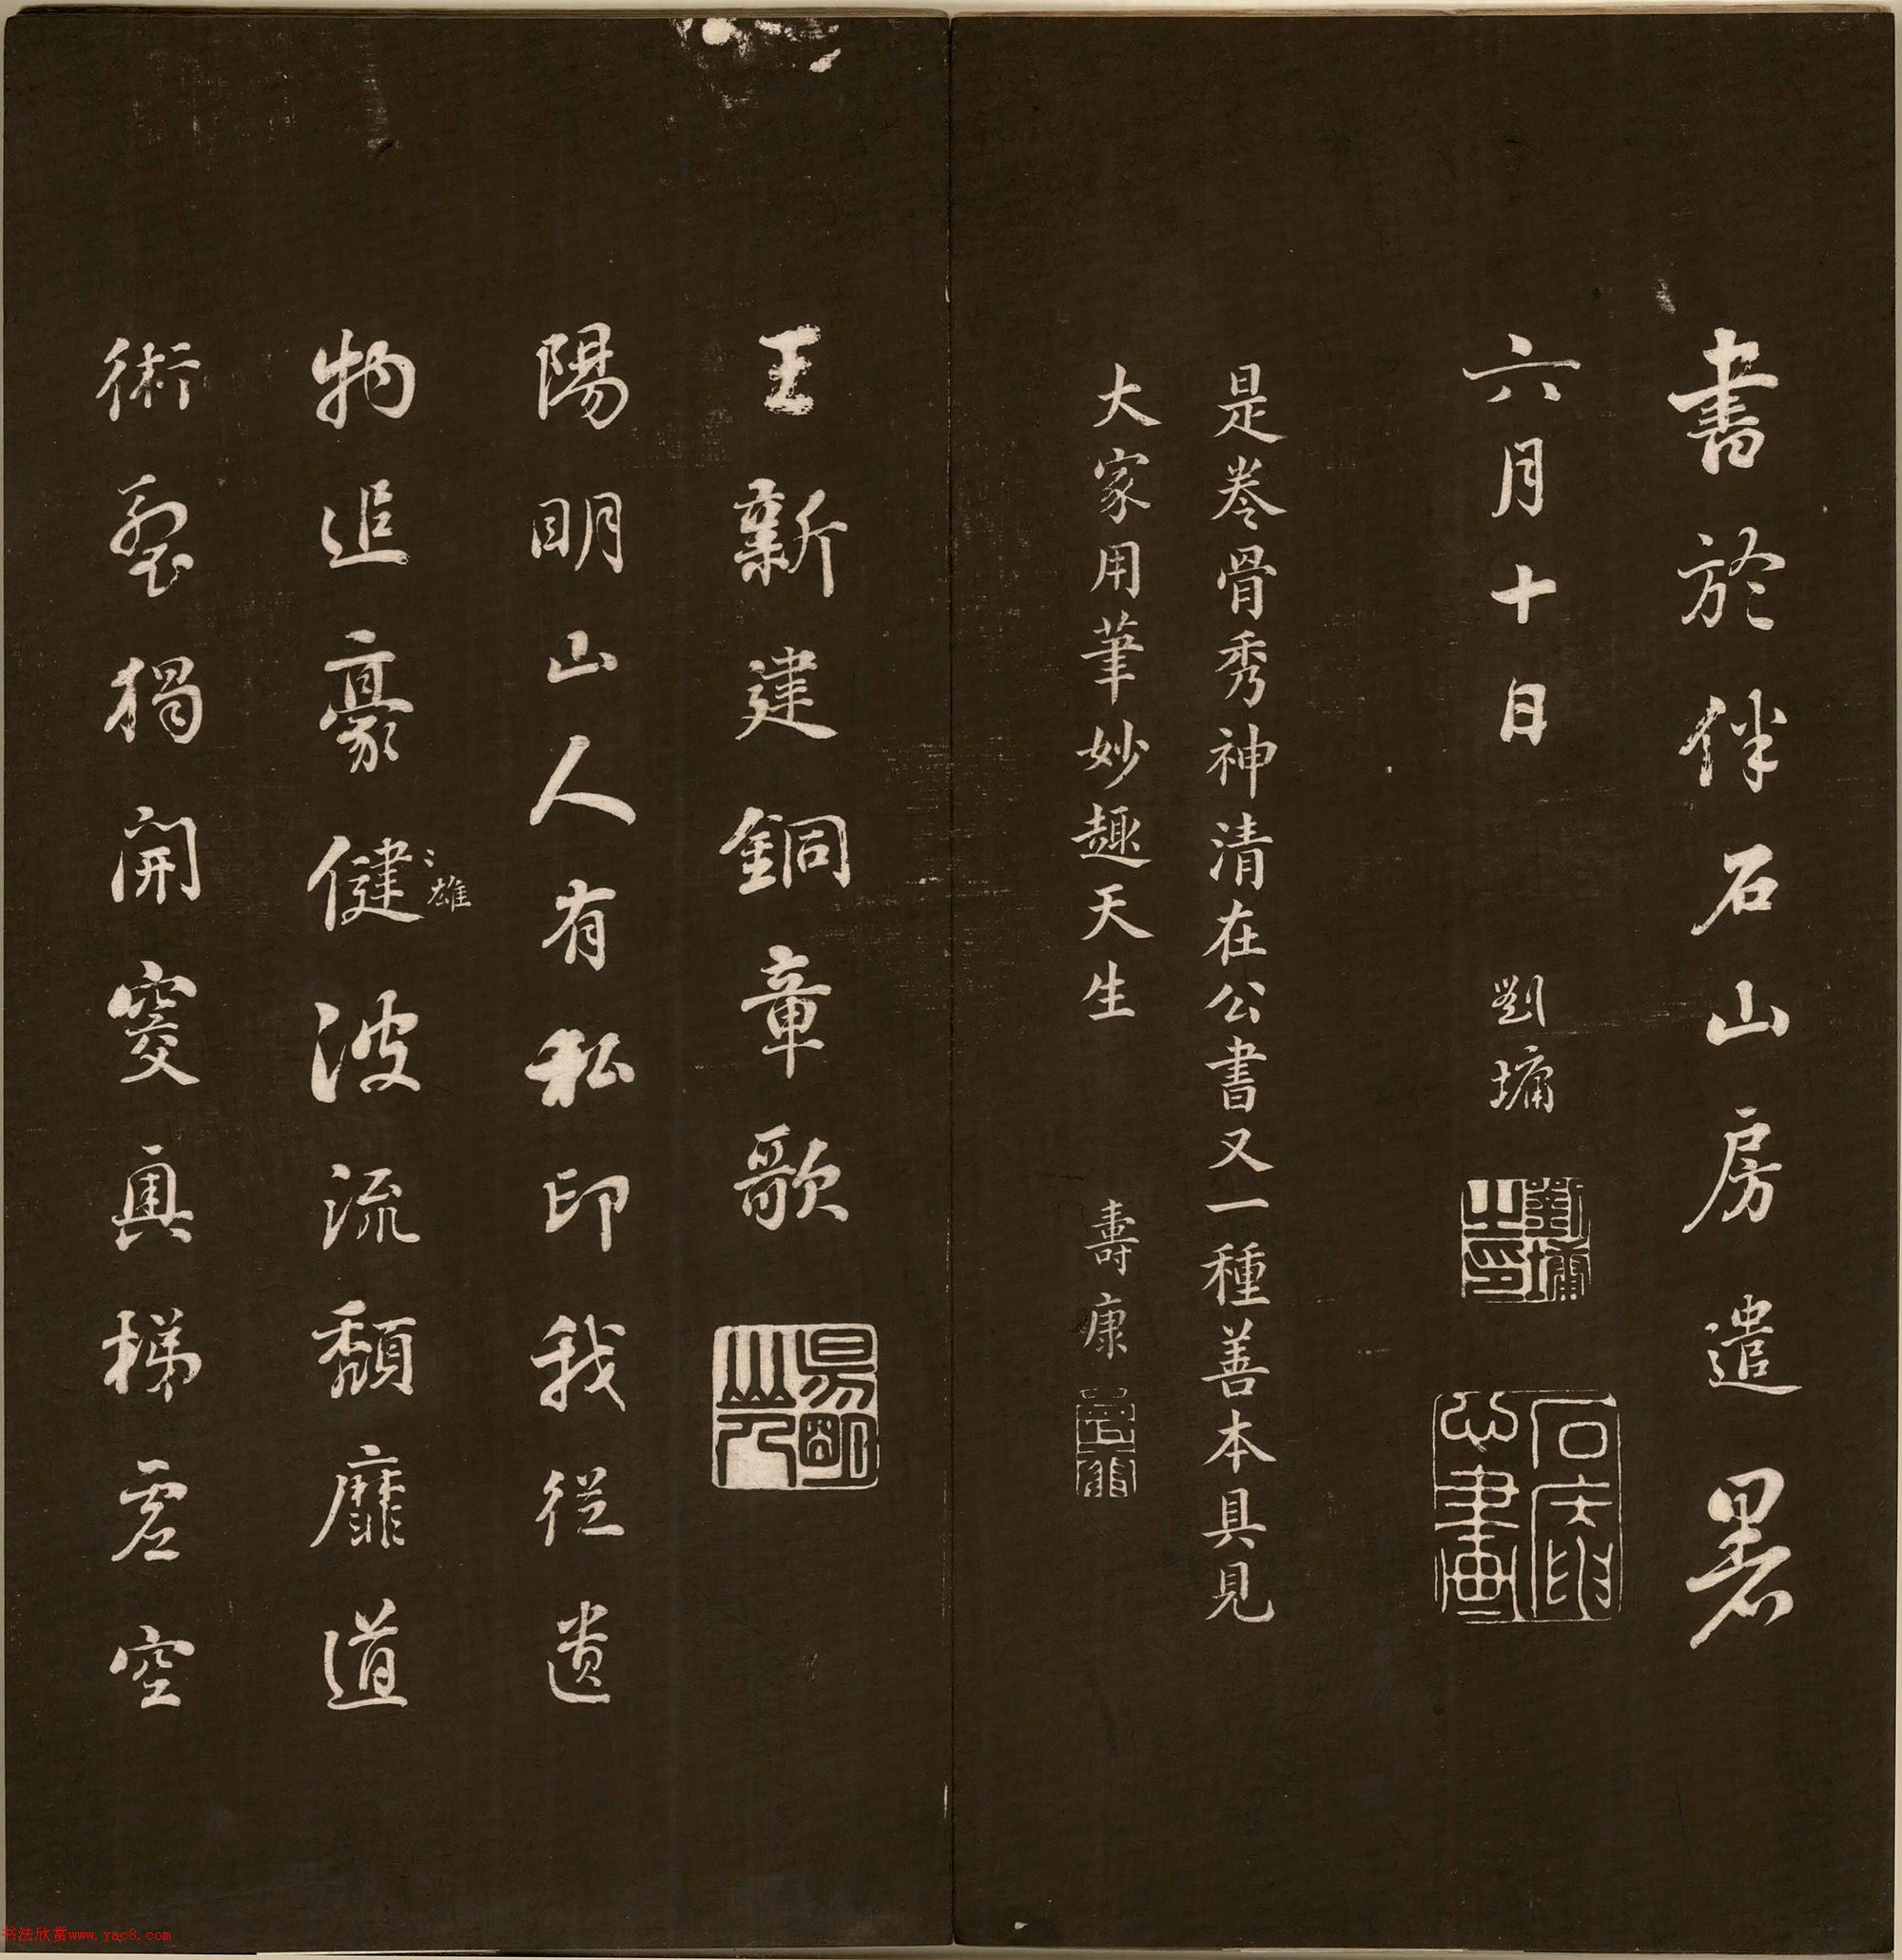 書於伴石山房遣暑
六月十日 劉墉
劉墉之印
石庵 書畫
是卷骨秀神清在公書又一種善本具見
大家用筆妙趣天生 壽康
王新建銅章歌
陽明山人
陽明山人有私印我從遺
物追豪健
雄
波流頹靡道
術裂獨開窔奧梯虛空
书法欣赏www.yac8.com